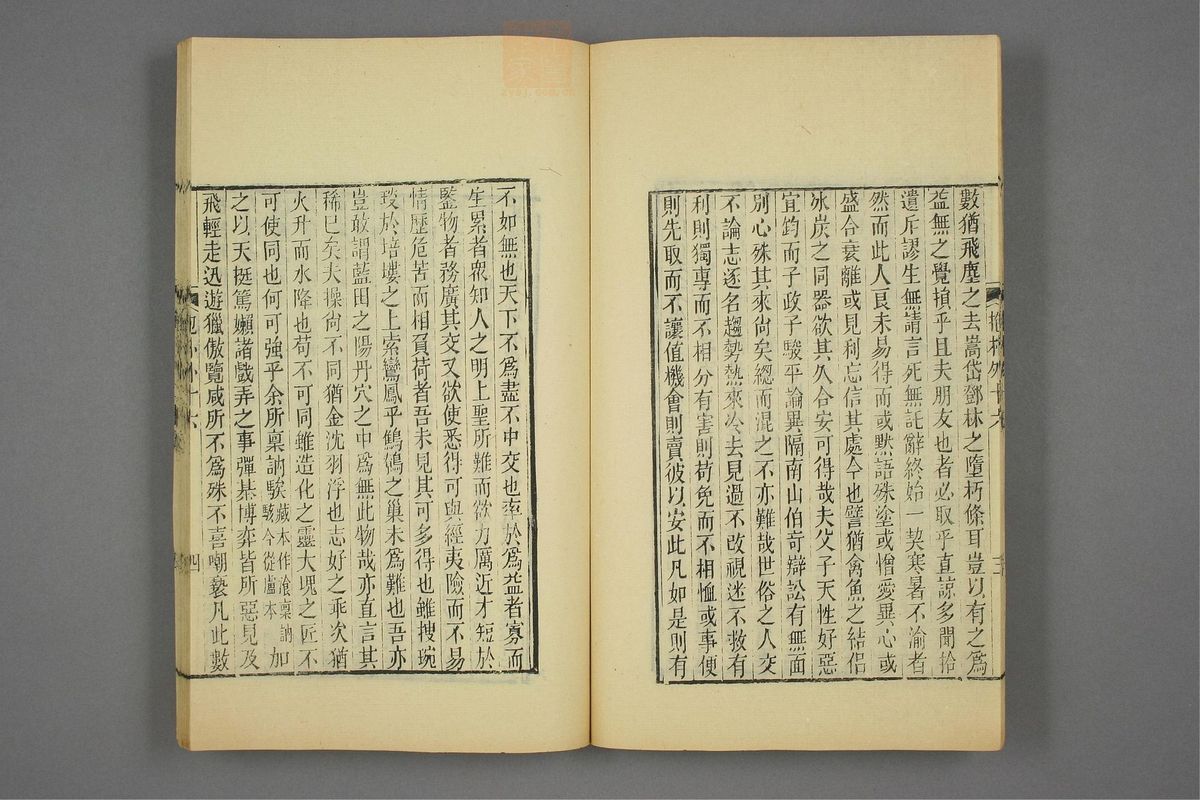 數猶飛塵之去嵩岱鄧林之墮朽條耳豈以有之為
益無之覺損乎且夫朋友也者必取乎直諒多聞拾
遺斥謬生無請言死無託辭終始一契寒暑不渝者
然而此人良未易得而或默語殊塗或憎愛異心或
盛合衰離或見利忘信其處今也譬猶禽魚之結侶
冰炭之同器欲其久合安可得哉夫父子天性好惡
宜鈞而子政子駿平論異隔南山伯奇辯訟有無面
別心殊其來尚矣總而混之不亦難哉世俗之人交
不論志逐名趨勢熱來冷去見過不改視迷不救有
利則獨專而不相分有害則苟免而不相恤或事便
則先取而不讓值機會則賣彼以安此凡如是則有
不如無也天下不為盡不中交也率於為益者寡而
生累者眾知人之明上聖所難而欲力厲近才短於
鑒物者務廣其交又欲使悉得可與經夷險而不易
情歷危苦而相負荷者吾未見其可多得也雖搜琬
琰於培塿之上索鸞鳳乎鷦鷯之巢未為難也吾亦
豈敢謂藍田之陽丹穴之中為無此物哉亦直言其
稀已矣夫操尚不同猶金沈羽浮也志好之乖次猶
火升而水降也苟不可同雖造化之靈大塊之匠不
可使同也何可強乎余所稟訥騃藏本作飡稟訥駭今從盧本加
之以天挺篤嬾諸戲弄之事彈棊博弈皆所惡見及
飛輕走迅遊獵傲覽咸所不為殊不喜嘲褻凡此數
四